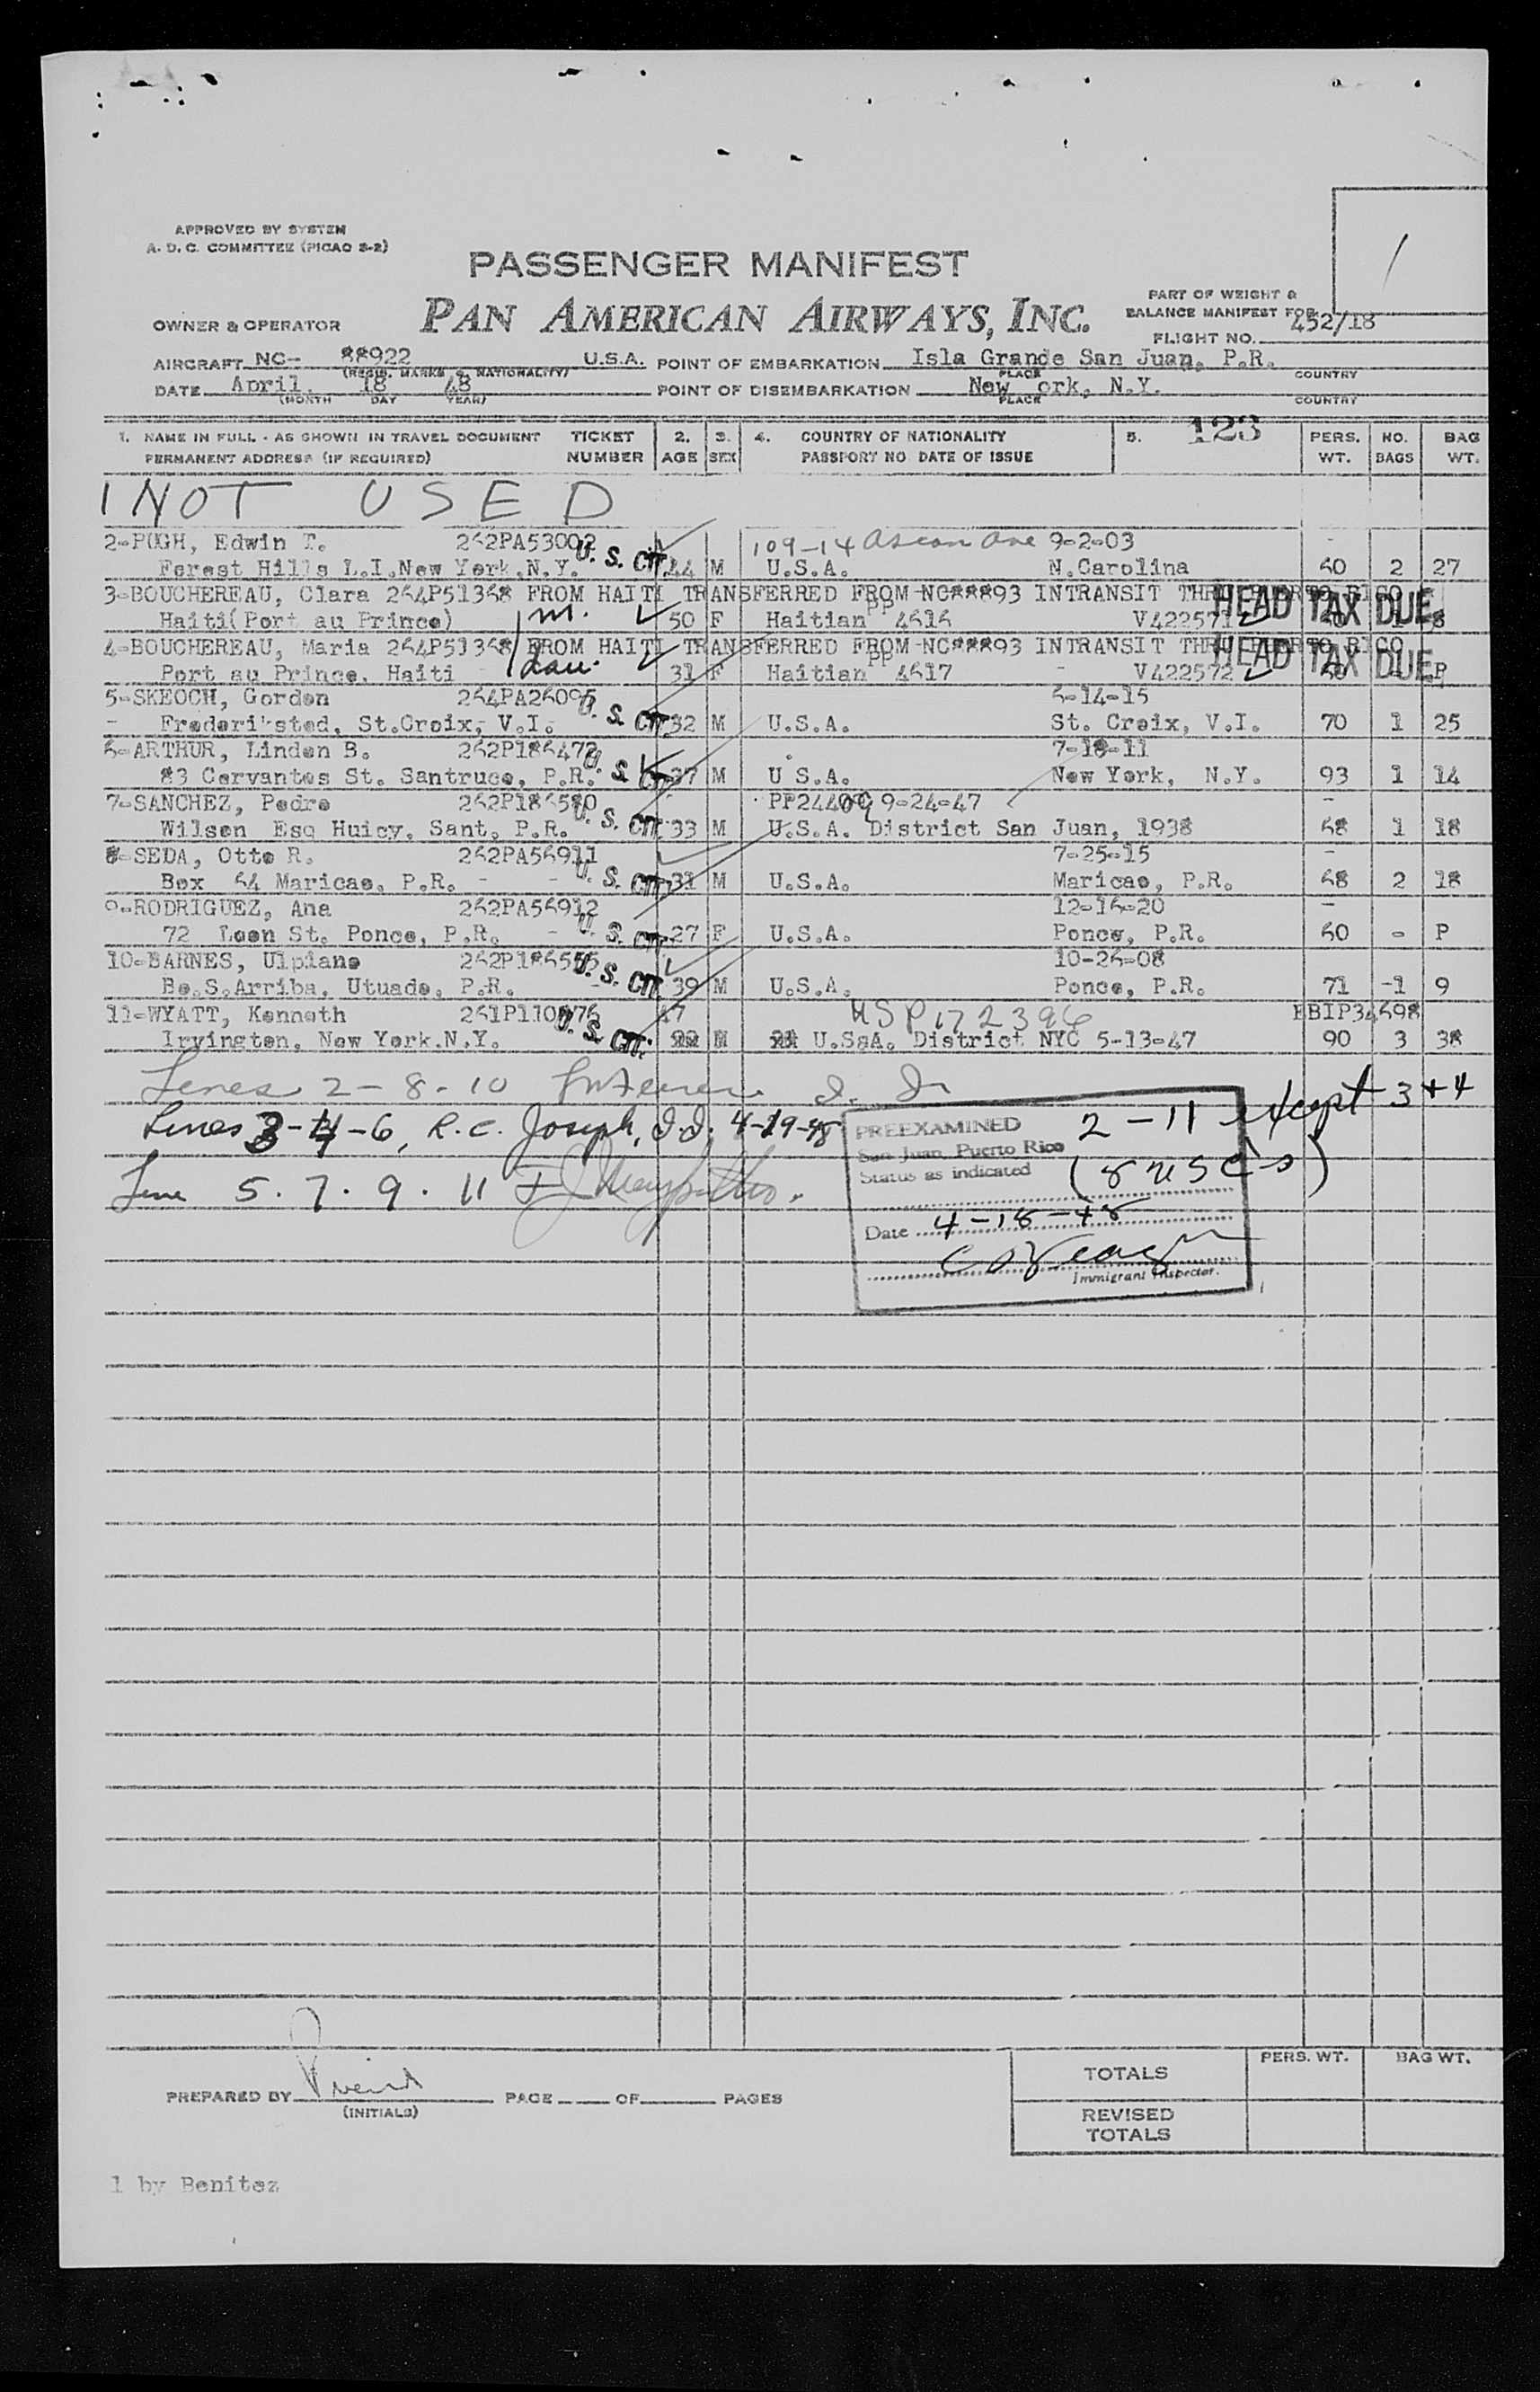 APPROVED BY SYSTEM
A. D. C. COMMITTEE (PICAO S-2)
PASSENGER MANIFEST
PAN AMERICAN AIRWAYS, INC.
OWNER & OPERATOR
PART OF WEIGHT &
BALANCE MANIFEST FOR
FLIGHT NO. 452/18
AIRCRAFT NC- 88922 U.S.A. POINT OF EMBARKATION Isla Grande San Juan, P.R.
(REGIS. MARKS & NATIONALITY) PLACE COUNTRY
DATE April. 18 48 POINT OF DISEMBARKATION New ork, N.Y.
(MONTH DAY YEAR) PLACE COUNTRY
1. NAME IN FULL - AS SHOWN IN TRAVEL DOCUMENT TICKET 2. 3. 4. COUNTRY OF NATIONALITY 5. 123 PERS. NO. BAG
PERMANENT ADDRESS (IF REQUIRED) NUMBER AGE SEX PASSPORT NO DATE OF ISSUE WT. BAGS WT.
1 NOT USED
2-PUGH, Edwin T. 262PA53002 109-14 Ascan Ave 9-2-03 -
Forest Hills L.I.New York.N.Y. U. S. CIT. 44 M U.S.A. N.Carolina 60 2 27
3-BOUCHEREAU, Clara 264P51368 FROM HAITI TRANSFERRED FROM NC88893 INTRANSIT THRU PUERTO RICO
Haiti(Port au Prince) m. 50 F Haitian PP 4616 V422571 HEAD TAX DUE
4-BOUCHEREAU, Maria 264P51368 FROM HAITI TRANSFERRED FROM NC88893 INTRANSIT THRU PUERTO RICO
Port au Prince. Haiti dau. 31 F Haitian PP 4617 V422572 HEAD TAX DUE P
5-SKEOCH, Gordon 264PA26095 6-14-15
Frederiksted, St.Croix, V.I. U. S. CIT. 32 M U.S.A. St. Croix, V.I. 70 1 25
6-ARTHUR, Linden B. 262P186472 7-18-11
83 Cervantes St. Santruce, P.R. U. S. 37 M U S.A. New York, N.Y. 93 1 14
7-SANCHEZ, Pedro 262P186580 PP24409 9-24-47 -
Wilson Esq Huicy, Sant, P.R. U. S. CIT. 33 M U.S.A. District San Juan, 1938 68 1 18
8-SEDA, Otto R. 262PA56911 7-25-15 -
Box 64 Maricao, P.R. - - U. S. CIT. 31 M U.S.A. Maricao, P.R. 68 2 18
9-RODRIGUEZ, Ana 262PA56912 12-16-20 -
72 Leon St. Ponce, P.R. - U. S. CIT. 27 F U.S.A. Ponce, P.R. 60 - P
10-BARNES, Ulpiano 262P186555 10-26-08
Bo.S.Arriba, Utuado, P.R. U. S. CIT. 39 M U.S.A. Ponce, P.R. 71 -1 9
11-WYATT, Kenneth 47 USP172396 EBIP34698
Irvington, New York.N.Y. U. S. CIT. M U.S.A. District NYC 5-13-47 90 3 38
Lines 2-8-10
Lines 3-4-6, R.C. Joseph, I.I. 4-19-48
Line 5. 7. 9. 11
PREEXAMINED 2-11 except 3+4
San Juan, Puerto Rico
Status as indicated (8 USC's)
Date 4-18-48
Immigrant Inspector.
TOTALS PERS. WT. BAG WT.
PREPARED BY PAGE OF PAGES
(INITIALS)
REVISED
TOTALS
1 by Benitez